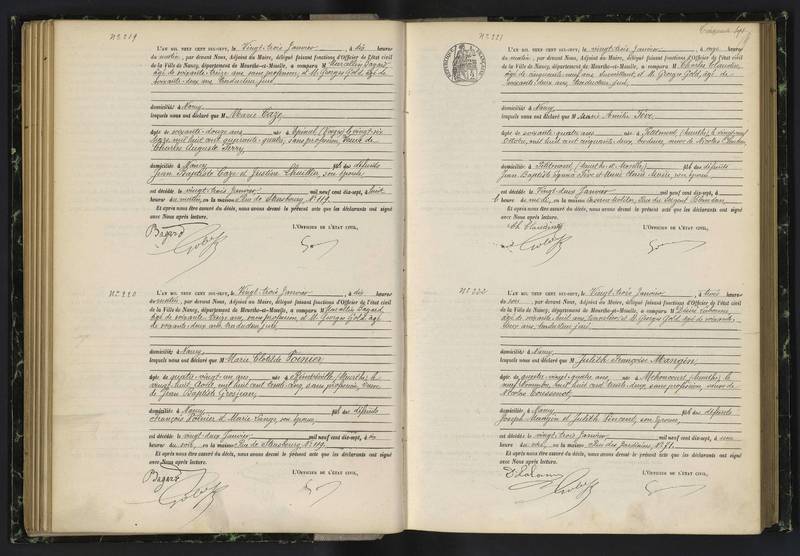 No 219
L'an mil neuf cent dix-sept, le Vingt-trois Janvier, à dix heures
du matin, par devant Nous, Adjoint au Maire, délégué faisant fonctions d'Officier de l'état civil
de la Ville de Nancy, département de Meurthe-et-Moselle, a comparu M
âgé de soixante-treize ans, sans profession, et M. Georges Gold, âgé de
soixante-deux ans, Conducteur
domicilié à Nancy
lesquels nous ont déclaré que M Marie Caze
âgée de soixante-douze ans née à Epinal (Vosges) le vingt-six
Mars mil huit cent quarante-quatre, sans profession, veuve de
Charles Auguste Ferry,
domiciliée à Nancy fille des défunts
Jean Baptiste Caze et Justine Lhuillier, son épouse,
est décédée le vingt-trois Janvier mil neuf cent dix-sept, à huit
heures du matin, en la maison Rue de Strasbourg, No 119.
Et après nous être assuré du décès, nous avons dressé le présent acte que les déclarants ont signé
avec Nous après lecture.
L'Officier de l'état civil,
No 220
L'an mil neuf cent dix-sept, le Vingt-trois Janvier, à dix heures
du matin, par devant Nous, Adjoint au Maire, délégué faisant fonctions d'Officier de l'état civil
de la Ville de Nancy, département de Meurthe-et-Moselle, a comparu M
âgé de soixante-treize ans, sans profession, et M. Georges Gold, âgé
de soixante-deux ans, Conducteur
domicilié à Nancy
lesquels nous ont déclaré que M Marie Clotilde Poinier
âgée de quatre-vingt-un ans née à (Meurthe) le
vingt-huit Août mil huit cent trente-cinq, sans profession, veuve
de Jean Baptiste Grosjean,
domiciliée à Nancy fille des défunts
François Poinier et Marie Lange, son épouse,
est décédée le vingt-deux Janvier mil neuf cent dix-sept, à
heures du soir, en la maison Rue de Strasbourg, No 119.
Et après nous être assuré du décès, nous avons dressé le présent acte que les déclarants ont signé
avec Nous après lecture.
L'Officier de l'état civil,
No 221
L'an mil neuf cent dix-sept, le vingt-trois Janvier, à onze heures
du matin, par devant Nous, Adjoint au Maire, délégué faisant fonctions d'Officier de l'état civil
de la Ville de Nancy, département de Meurthe-et-Moselle, a comparu M Charles Claudin,
âgé de cinquante-neuf ans, Surveillant, et M. Georges Gold, âgé de
soixante-deux ans, Conducteur
domicilié à Nancy
lesquels nous ont déclaré que M Marie Amélie
âgée de soixante-quatre ans née à Petitmont (Meurthe) le vingt-neuf
Octobre mil huit cent cinquante-deux, brodeuse, veuve de Nicolas
domiciliée à Petitmont (Meurthe-et-Moselle) fille des défunts
Jean Baptiste et Marie son épouse,
est décédée le Vingt-deux Janvier mil neuf cent dix-sept, à
heures du en la maison Rue du Sergent Blandan.
Et après nous être assuré du décès, nous avons dressé le présent acte que les déclarants ont signé
avec Nous après lecture.
L'Officier de l'état civil,
No 222
L'an mil neuf cent dix-sept, le Vingt-trois Janvier, à trois heures
du soir, par devant Nous, Adjoint au Maire, délégué faisant fonctions d'Officier de l'état civil
de la Ville de Nancy, département de Meurthe-et-Moselle, a comparu M
âgé de soixante-huit ans, et M. Georges Gold, âgé de soixante-
deux ans, Conducteur
domicilié à Nancy
lesquels nous ont déclaré que M Judith Françoise Mangin,
âgée de quatre-vingt-quatre ans, née à Méhoncourt (Meurthe) le
neuf Novembre mil huit cent trente-deux, sans profession, veuve de
Nicolas
domiciliée à Nancy fille des défunts
Joseph Mangin et Judith Vincent, son épouse,
est décédée le vingt-trois Janvier mil neuf cent dix-sept, à une
heure du soir, en la maison Rue des Jardiniers, No 71.
Et après nous être assuré du décès, nous avons dressé le présent acte que les déclarants ont signé
avec Nous après lecture.
L'Officier de l'état civil,